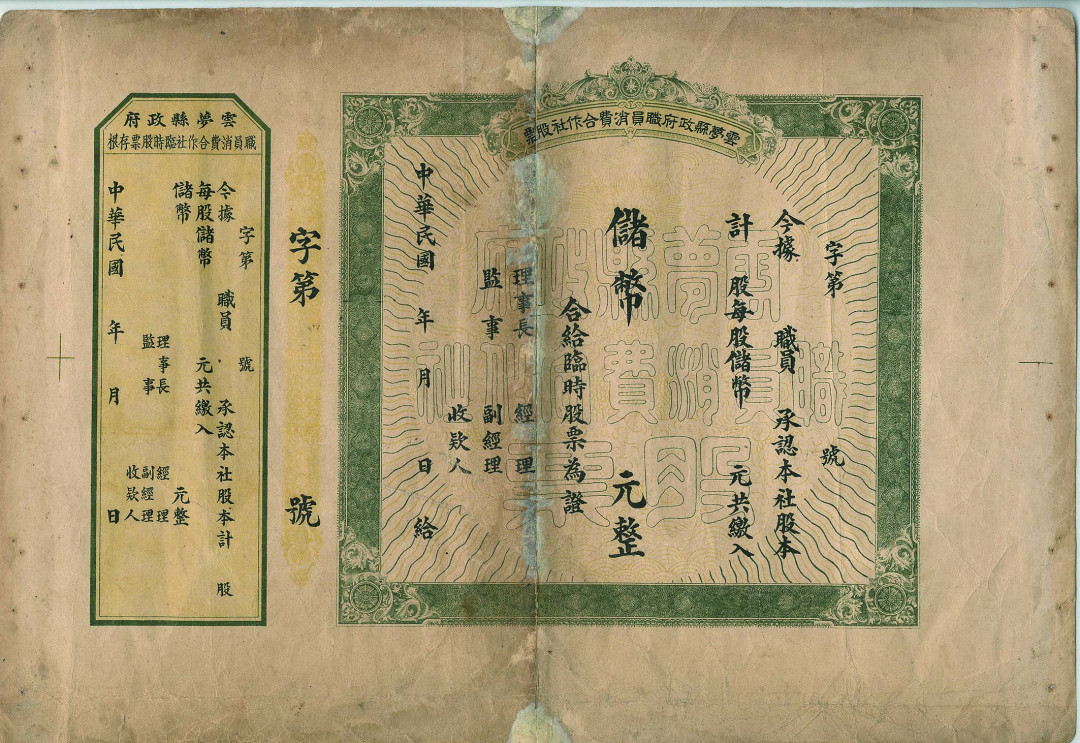 雲夢縣政府職員消費合作社股票
字第 號
今據 職員 承認本社股本
計 股每股儲幣 元共繳入
儲幣 元整
合給臨時股票為證
理事長 經理
監事 副經理
收欵人
中華民國 年 月 日給
雲夢縣政府
職員消費合作社
股票
字第 號
雲夢縣政府
職員消費合作社臨時股票存根
字第 號
今據 職員 承認本社股本計 股
每股儲幣 元共繳入
儲幣 元整
理事長 經理
監事 副經理
收欵人
中華民國 年 月 日